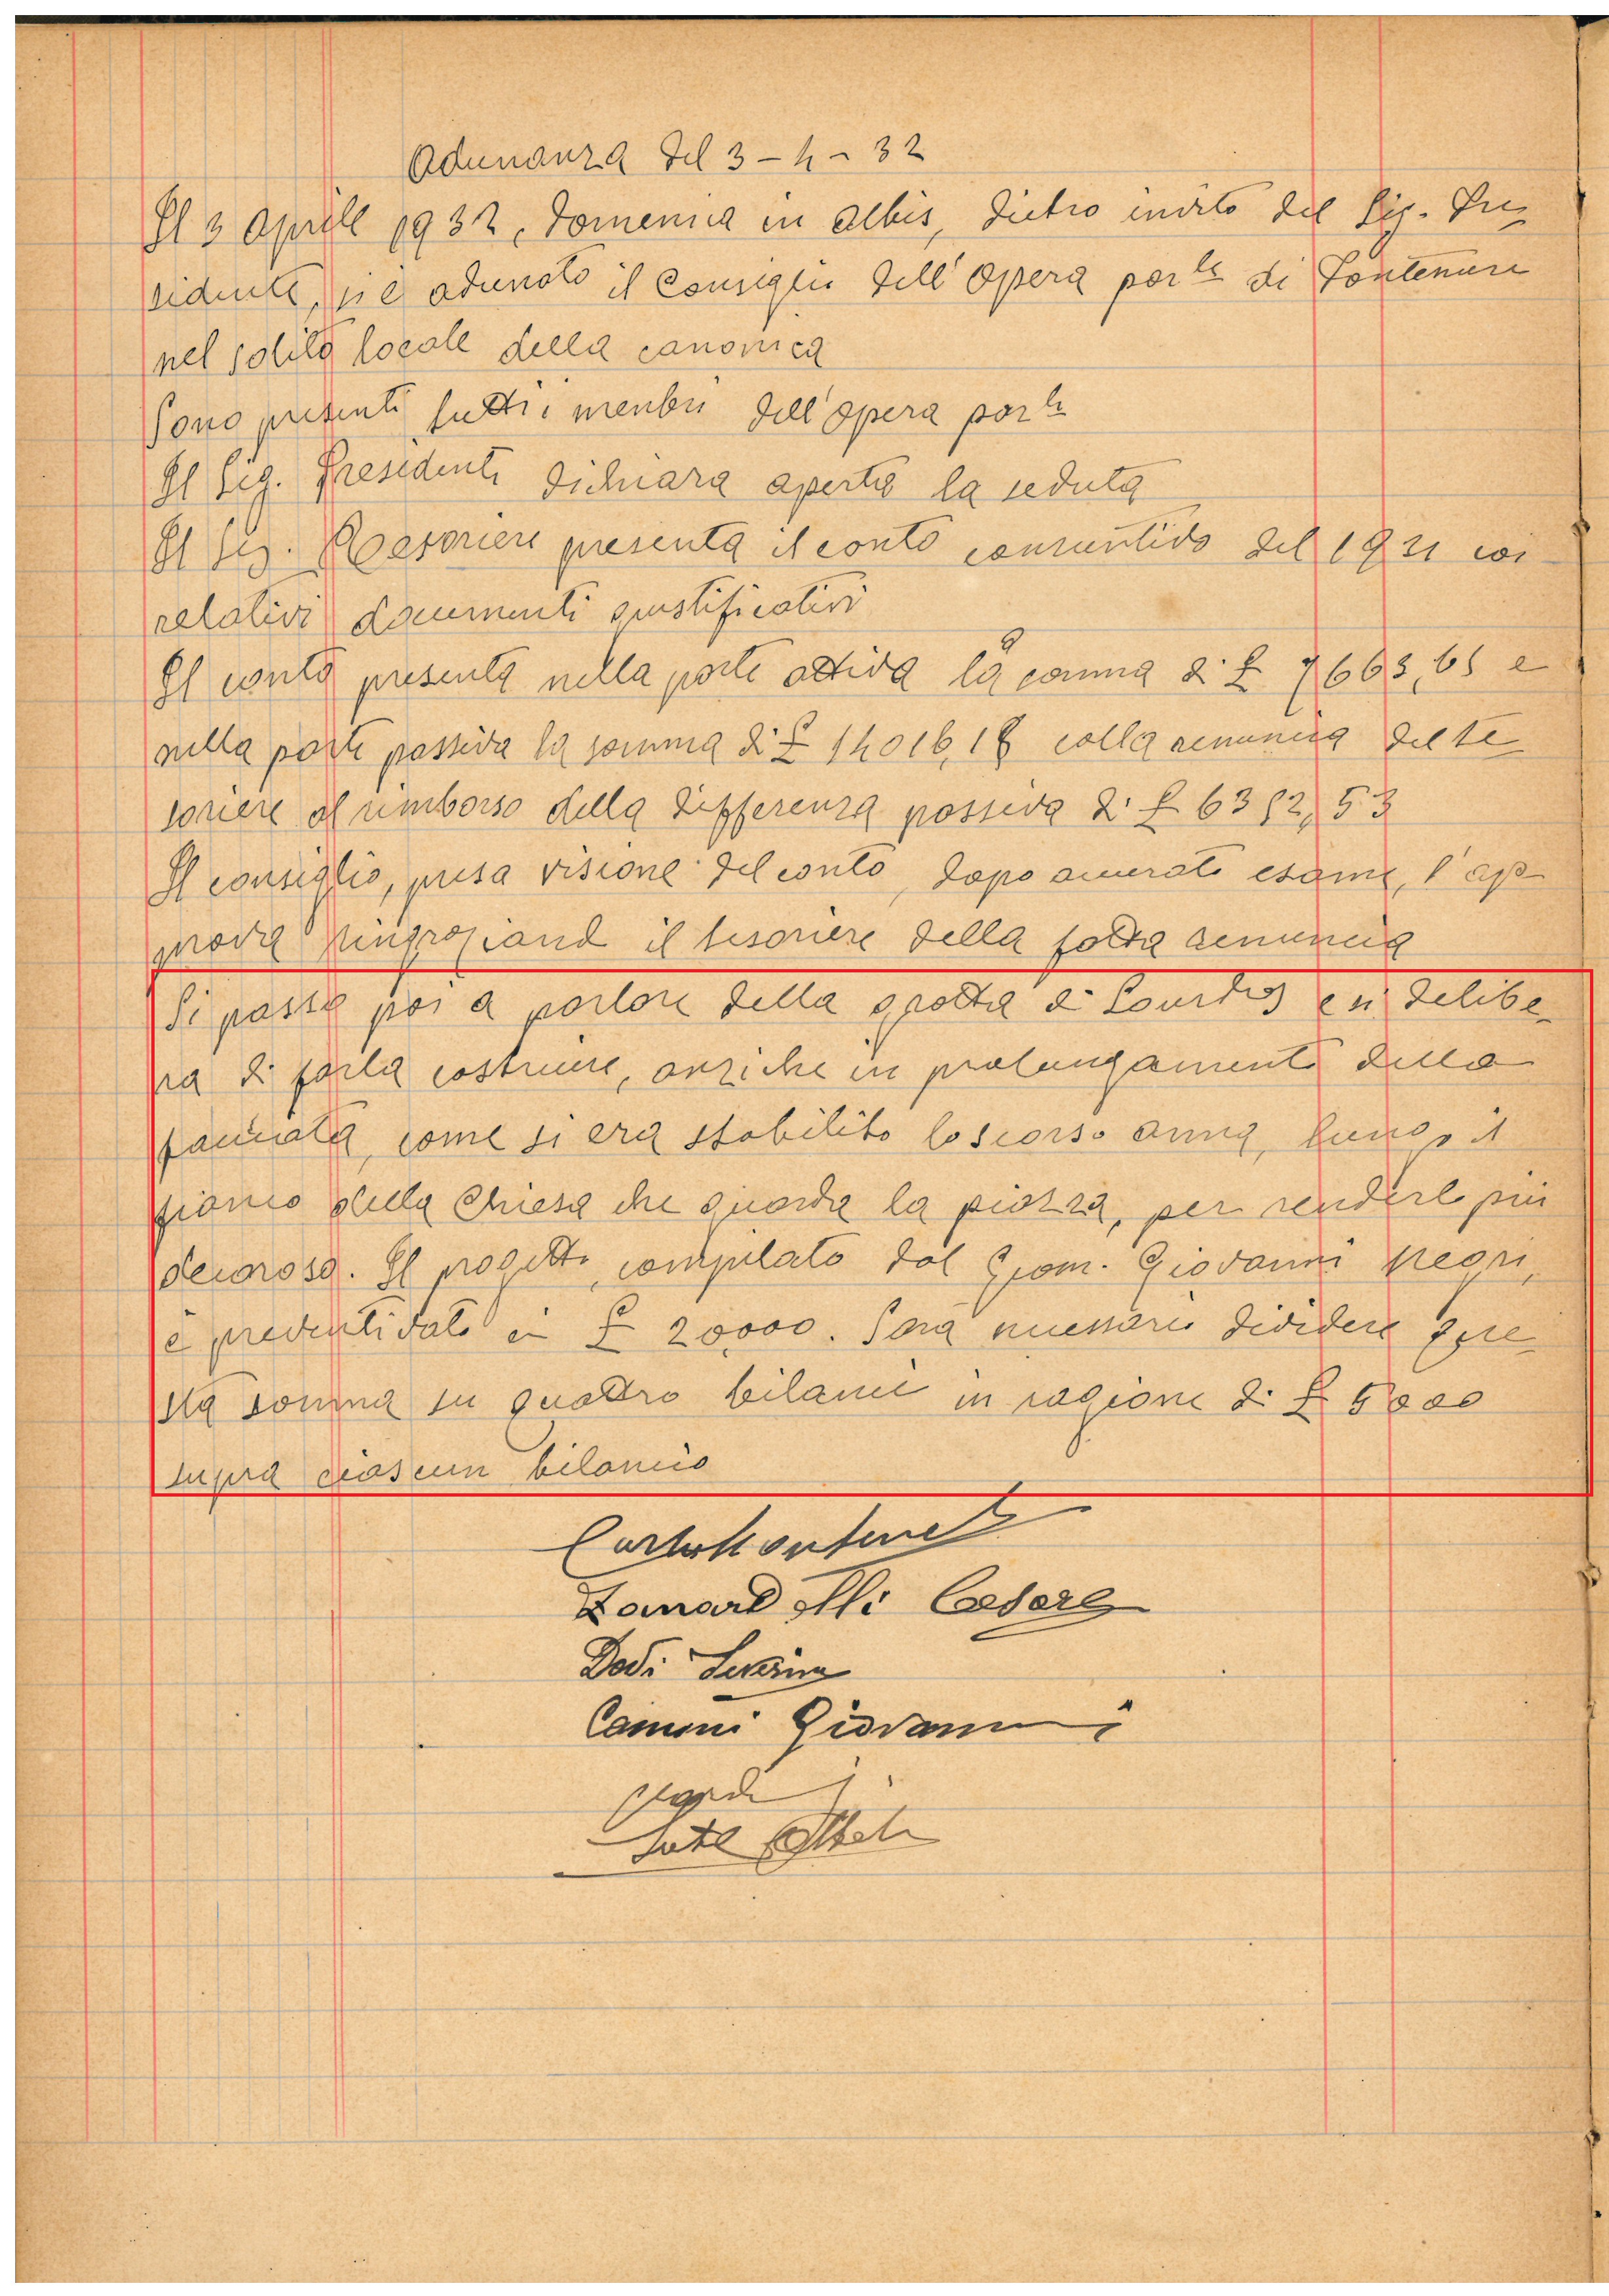 Adunanza del 3 - 4 - 32
Il 3 Aprile 1932, domenica in albis, dietro invito del Sig. Pre
sidente, si è adunato il Consiglio dell'Opera par.le di Fontenure
nel solito locale della canonica
Sono presenti tutti i membri dell'Opera par.le
Il Sig. Presidente dichiara aperta la seduta
Il Sig. Tesoriere presenta il conto consuntivo del 1931 coi
relativi documenti giustificativi
Il conto presenta nella parte attiva la somma di £ 7663,65 e
nella parte passiva la somma di £ 14016,18 colla renuncia del te
soriere al rimborso della differenza passiva di £ 6352,53
Il consiglio, presa visione del conto, dopo accurato esame, l'ap
prova ringraziand il tesoriere della fatta renuncia
Si passa poi a parlare della grotta di Lourdes e si delibe-
ra di farla costruire, anziche in prolungamento della
facciata, come si era stabilito lo scorso anno, lungo il
fianco della Chiesa che guarda la piazza, per renderlo più
decoroso. Il progetto, compilato dal Geom. Giovanni Negri,
è preventivato in £ 20,000. Sarà necessario dividere que
sta somma su quattro bilanci in ragione di £ 5000
supra ciascun bilancio
Zanardelli Cesare
Dodi Severino
Camoni Giovanni